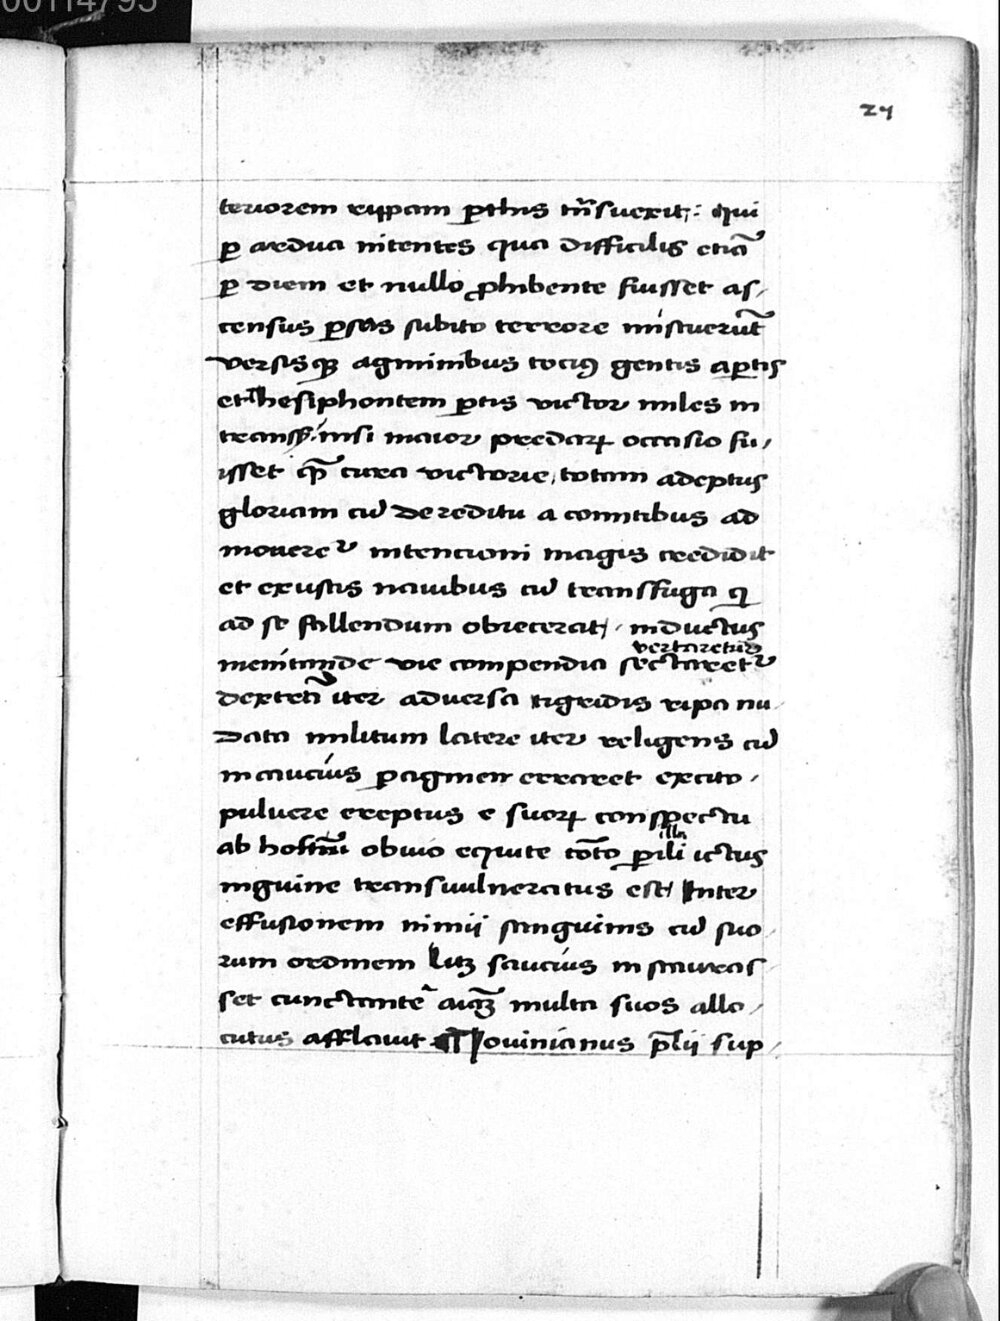 00114795
24
teriorem ripam ꝑthis tn̄suexit: qui
ꝑ ardua nitentes qua difficilis etiā
ꝑ diem et nullo ꝓhibente fuisset as-
census ꝑsas subito terrore miscuerūt
versisqꝫ agminibus tociꝰ gentis aꝑtis
et Thesiphontem ꝑtis victor miles in
nisi maior predarꝝ occasio fu-
isset qͣꝫ cura victorie, totam adeptus
gloriam cū de reditu a comitibus ad
moueret᷑ intencioni magis credidit
et exustis nauibus cū transfuga qͥ
ad se fallendum obiecerat, inductus
vertaretur
vie compendia sectaret᷑
dextrā iter aduersa tigridis ripa nu-
data militum latere iter religens cū
incaucius ꝑ agmen erraret excito
puluere ereptus e suorꝝ conspectu
illn
ab hostiū obuio equite ꝑ ili ictus
inguine transuulneratus est, Inter
effusionem nimii sanguinis cū suo-
rum ordinem lꝫ saucius instauras-
set cunctantē aīaꝫ multa suos allo-
cutus afflauit ¶ Iouinianus p̄lii sup-